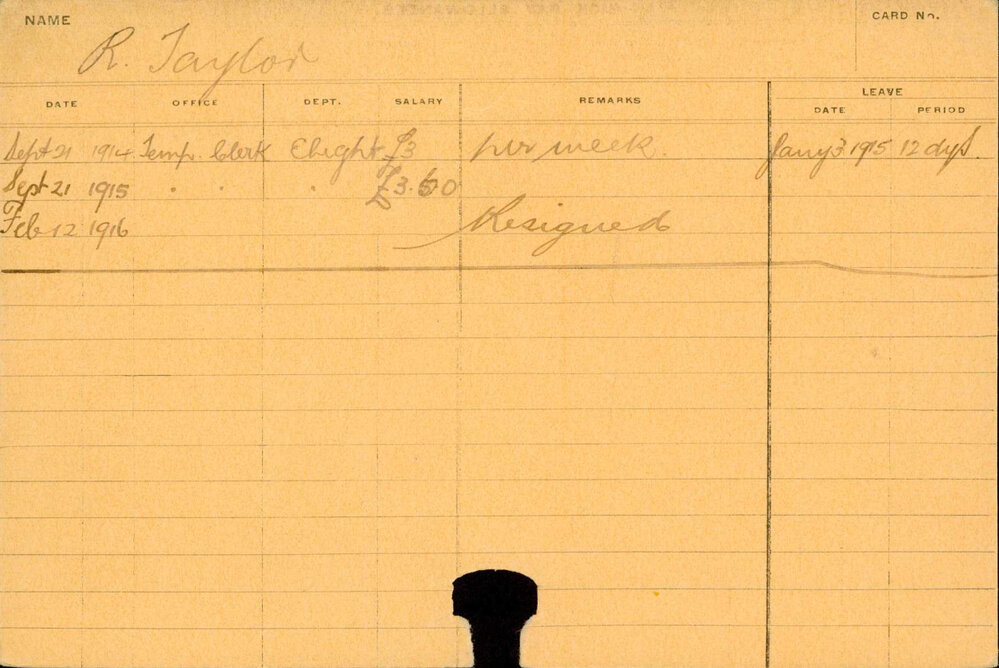 NAME
CARD No.
R. Taylor
LEAVE
DATE OFFICE DEPT. SALARY REMARKS DATE PERIOD
Sept 21 1914 Temp. Clerk Elight £3 per week. Jany 3 1915 12 dys.
Sept 21 1915 . . . £3.
Feb 12 1916 Resigned